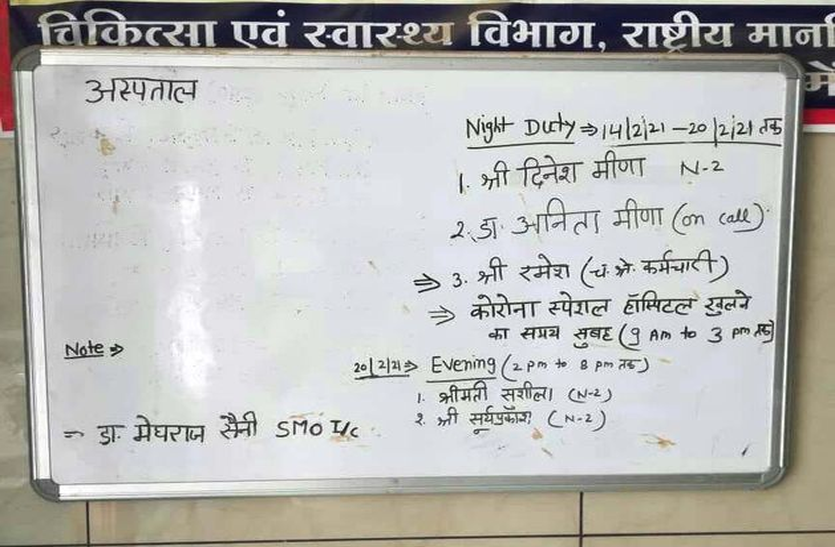 चिकित्सा एवं स्वास्थ्य विभाग, राष्ट्रीय मानि
में
अस्पताल
Night Duty ⇒ 14/2/21 – 20/2/21 तक
1. श्री दिनेश मीणा N-2
2. डा. अनिता मीणा (on call)
⇒ 3. श्री रमेश (च. श्रे. कर्मचारी)
⇒ कोरोना स्पेशल हॉस्पिटल खुलने
का समय सुबह (9 AM to 3 pm तक)
Note ⇒
20/2/21 ⇒ Evening (2 pm to 8 pm तक)
1. श्रीमती सशीला (N-2)
2. श्री सूर्यप्रकाश (N-2)
⇒ डा. मेघराज सैनी SMO I/c